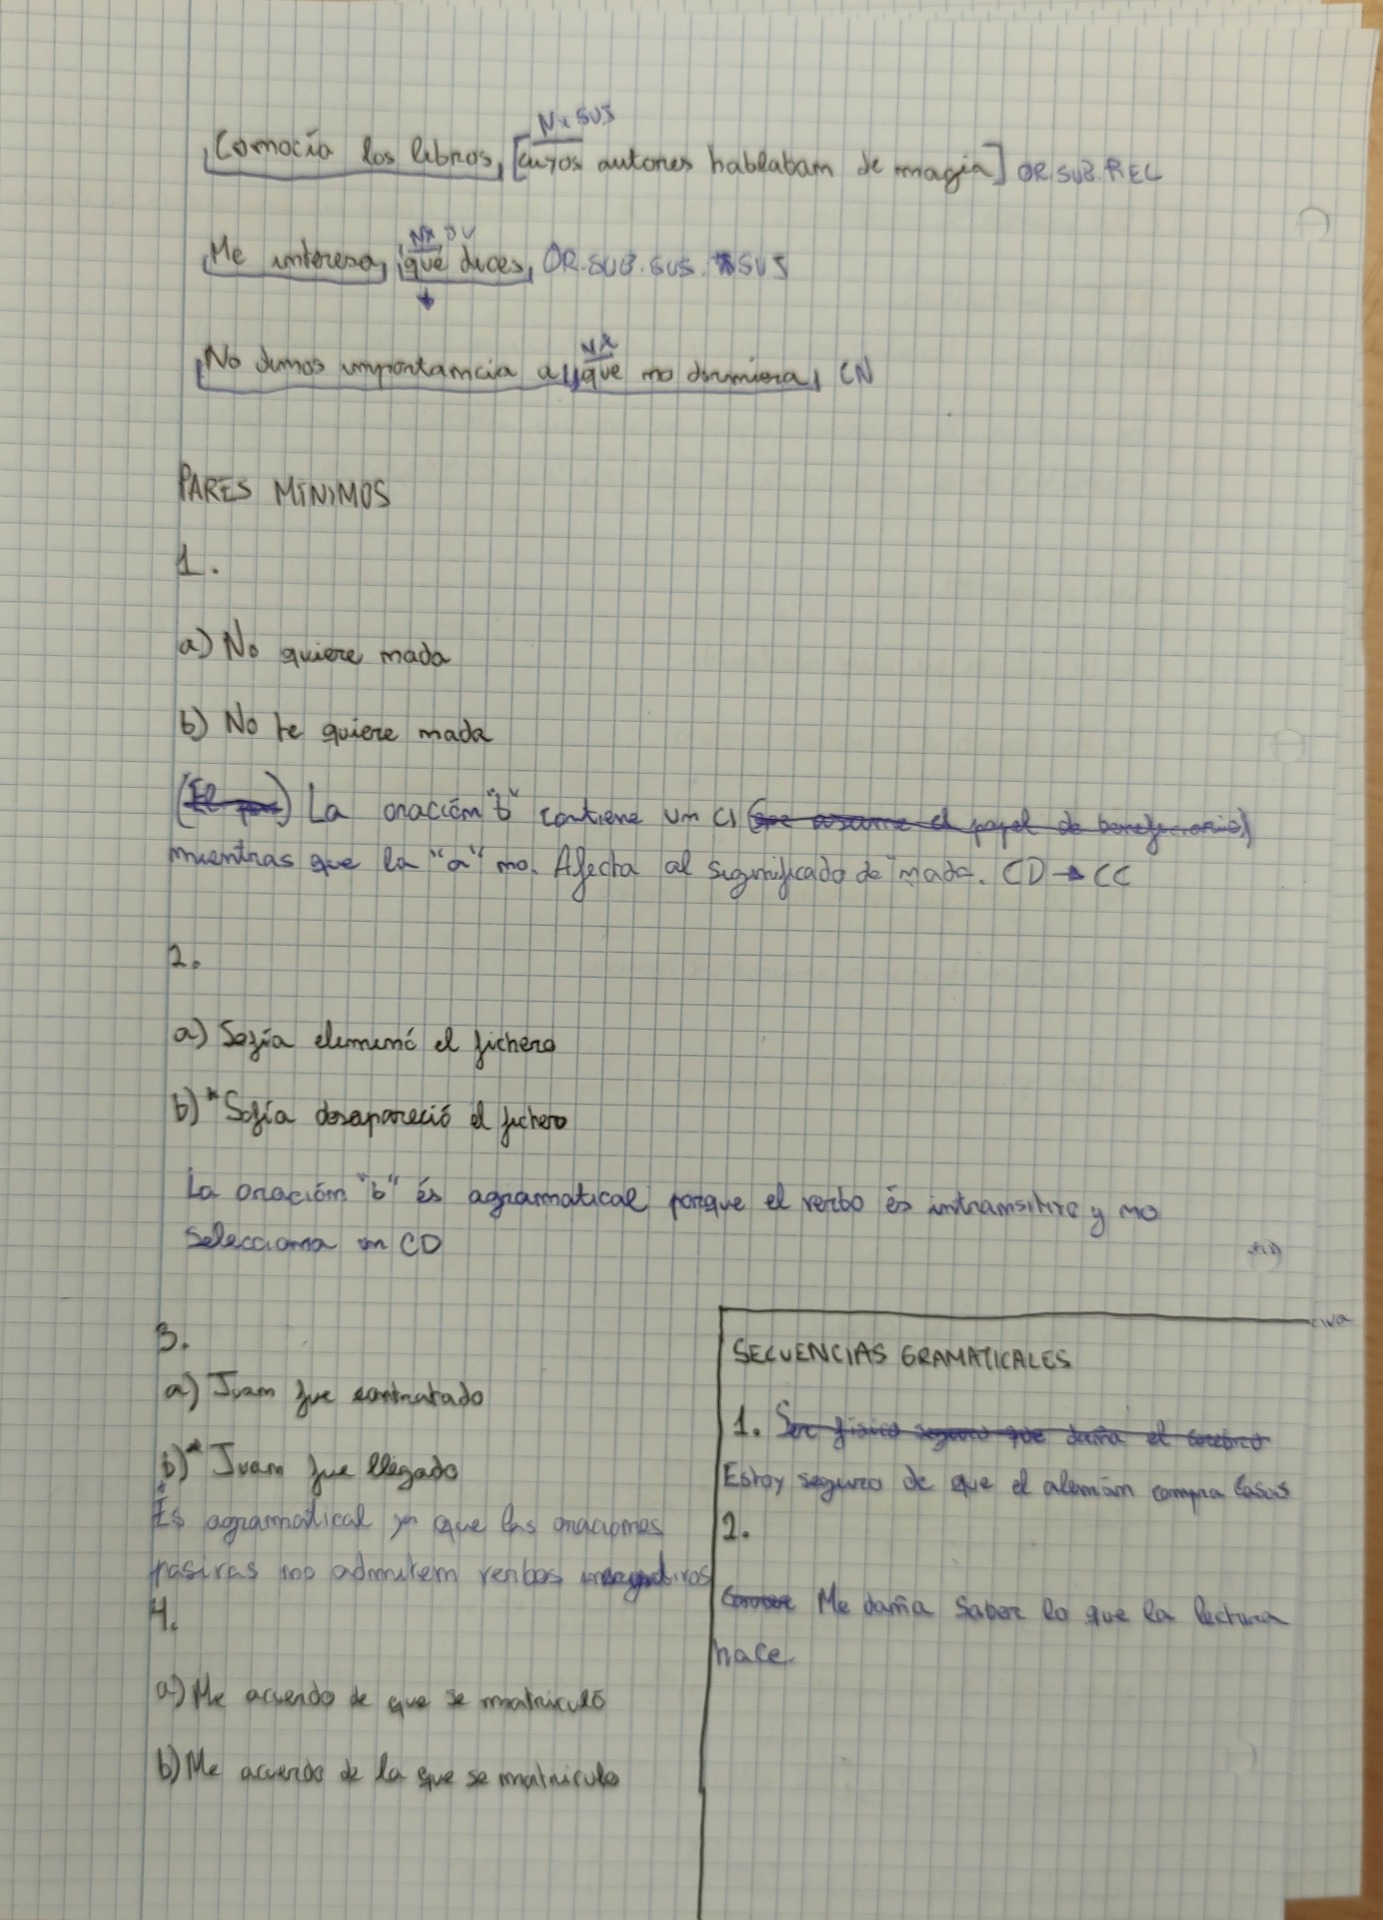 NX SUJ
Conocía los libros, [cuyos autores hablaban de magia] OR.SUB.REL
NX
Me interesa, qué dices, OR.SUB.SUS. SUJ
NX
No dimos importancia a que no durmiera, CN
PARES MÍNIMOS
1.
a) No quiere nada
b) No te quiere nada
(El) La oración "b" contiene un CI (que asume el papel de beneficiario)
mientras que la "a" no. Afecta al significado de "nada. CD → CC
2.
a) Sofía eliminó el fichero
b) *Sofía desapareció el fichero
La oración "b" és agramatical porque el verbo és intransitivo y no
selecciona un CD
3.
a) Juan fue contratado
b) * Juan fue llegado
És agramatical ya que las oraciones
pasivas no admiten verbos
4.
a) Me acuerdo de que se matriculó
b) Me acuerdo de la que se matriculó
SECUENCIAS GRAMATICALES
1. Ser físico seguro que daña el cerebro
Estoy seguro de que el alemán compra casas
2.
Conocer Me daña saber lo que la lectura
hace